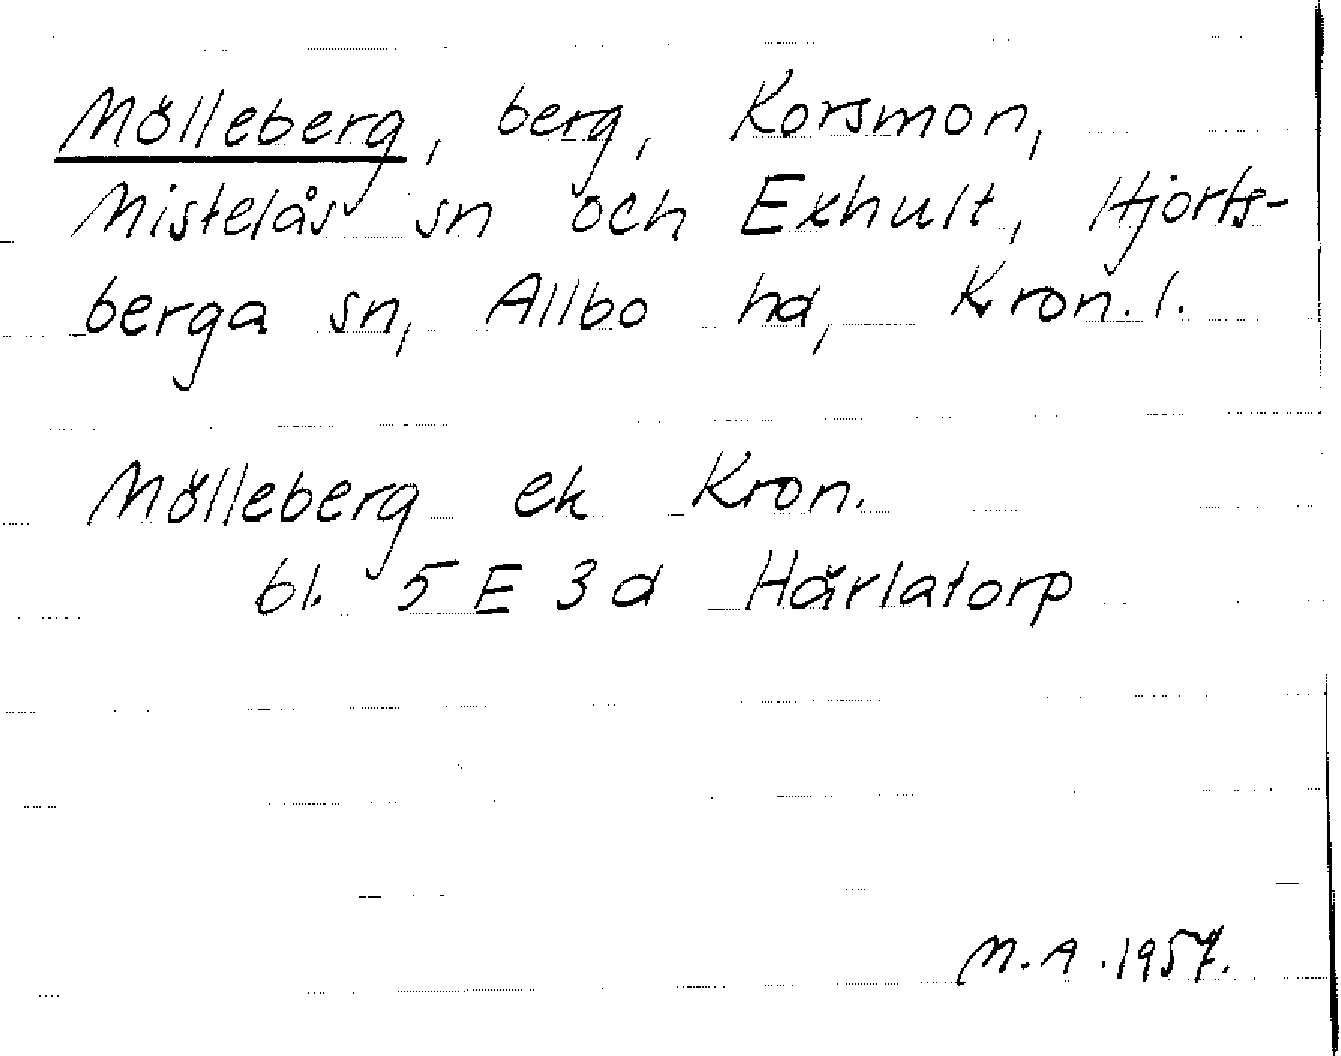 Mölleberg, berg, Korsmon,
Mistelås sn och Exhult, Hjorts-
berga sn, Allbo hd, Kron. l.
Mölleberg ek Kron.
bl. 5 E 3 d Härlatorp
M.A. 1957.